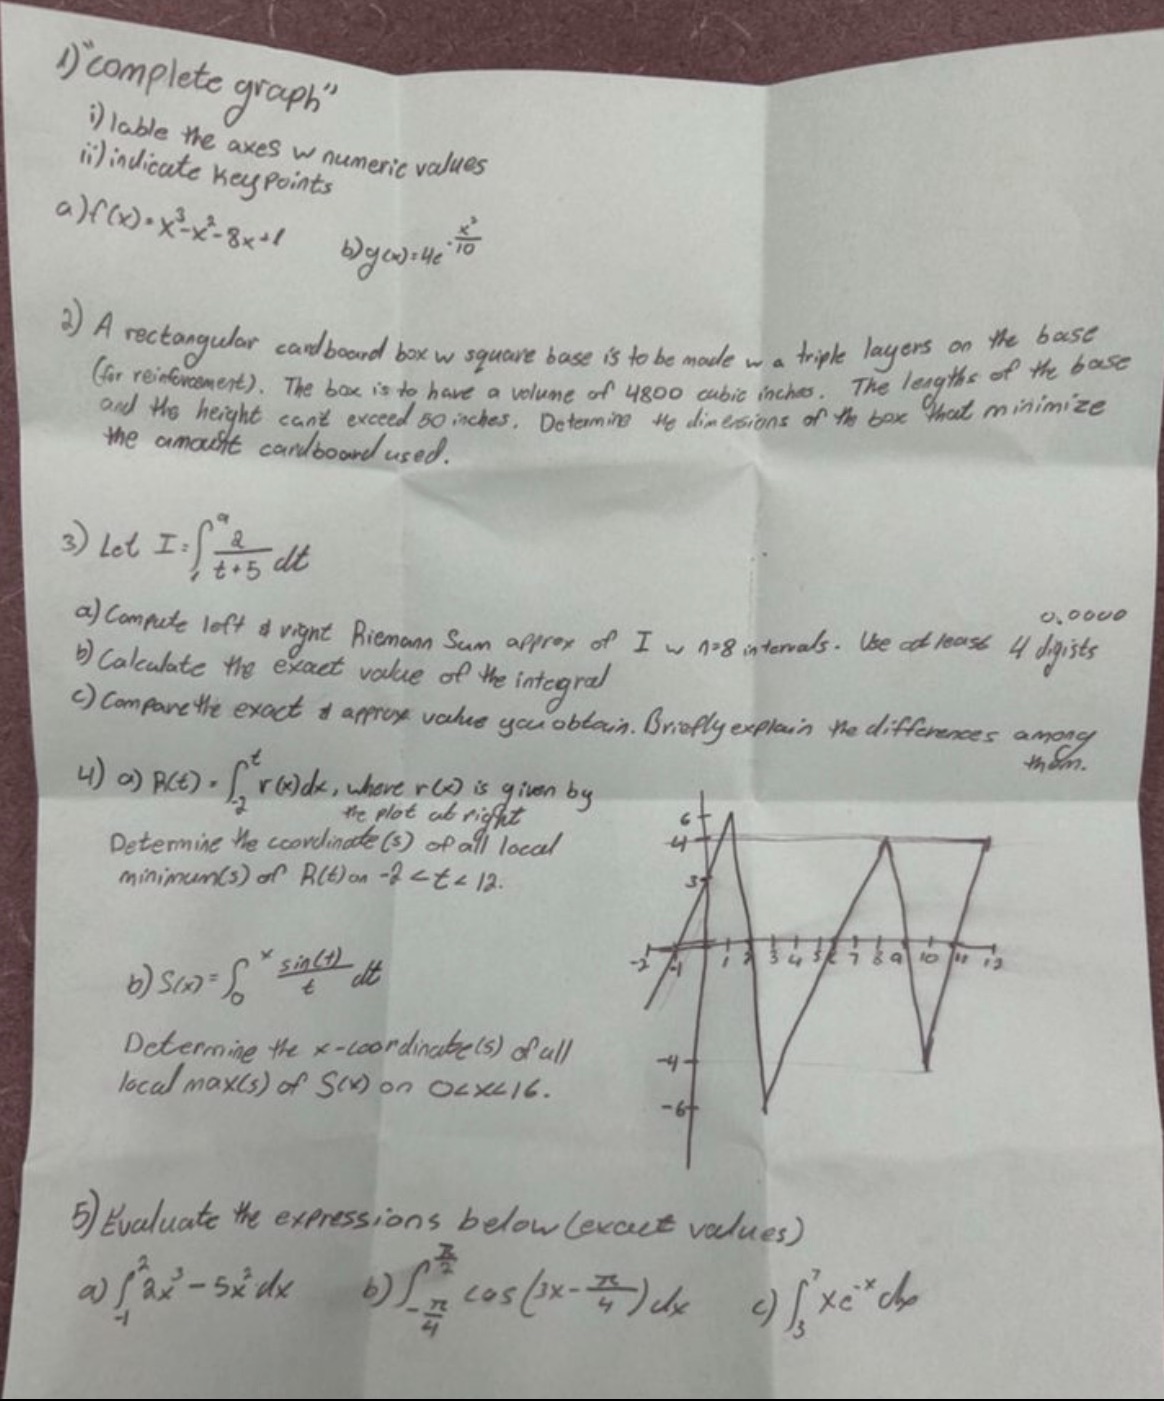 1) "complete graph"
i) lable the axes w numeric values
ii) indicate key points
a) f(x) = x³-x²-8x+1 b) g(x) = 4e^(-x²/10)
2) A rectangular cardboard box w square base is to be made w a triple layers on the base
(for reinforcement). The box is to have a volume of 4800 cubic inches. The lengths of the base
and the height can't exceed 50 inches. Determine the dimensions of the box that minimize
the amount cardboard used.
3) Let I = ∫₁⁹ 2/(t+5) dt
0.0000
a) Compute left & right Riemann Sum approx of I w n=8 intervals. Use at least 4 digists
b) Calculate the exact value of the integral
c) Compare the exact & approx value you obtain. Briefly explain the differences among
them.
4) a) R(t) = ∫₋₂ᵗ r(x)dx, where r(x) is given by
the plot at right
Determine the coordinate(s) of all local
minimum(s) of R(t) on -2<t<12.
6
4
3
-2 -1 1 2 3 4 5 6 7 8 9 10 11 12
-4
-6
b) S(x) = ∫₀ˣ sin(t)/t dt
Determine the x-coordinate(s) of all
local max(s) of S(x) on 0<x<16.
5) Evaluate the expressions below (exact values)
a) ∫₋₁² 2x³ - 5x² dx b) ∫_(-π/4)^(π/2) cos(3x - π/4) dx c) ∫₃⁷ xe⁻ˣ dx